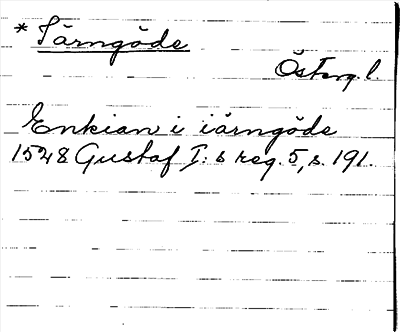 * Järngöde
Österg. l.
Enkian i iärngöde
1528 Gustaf I:s reg. 5, s. 191.